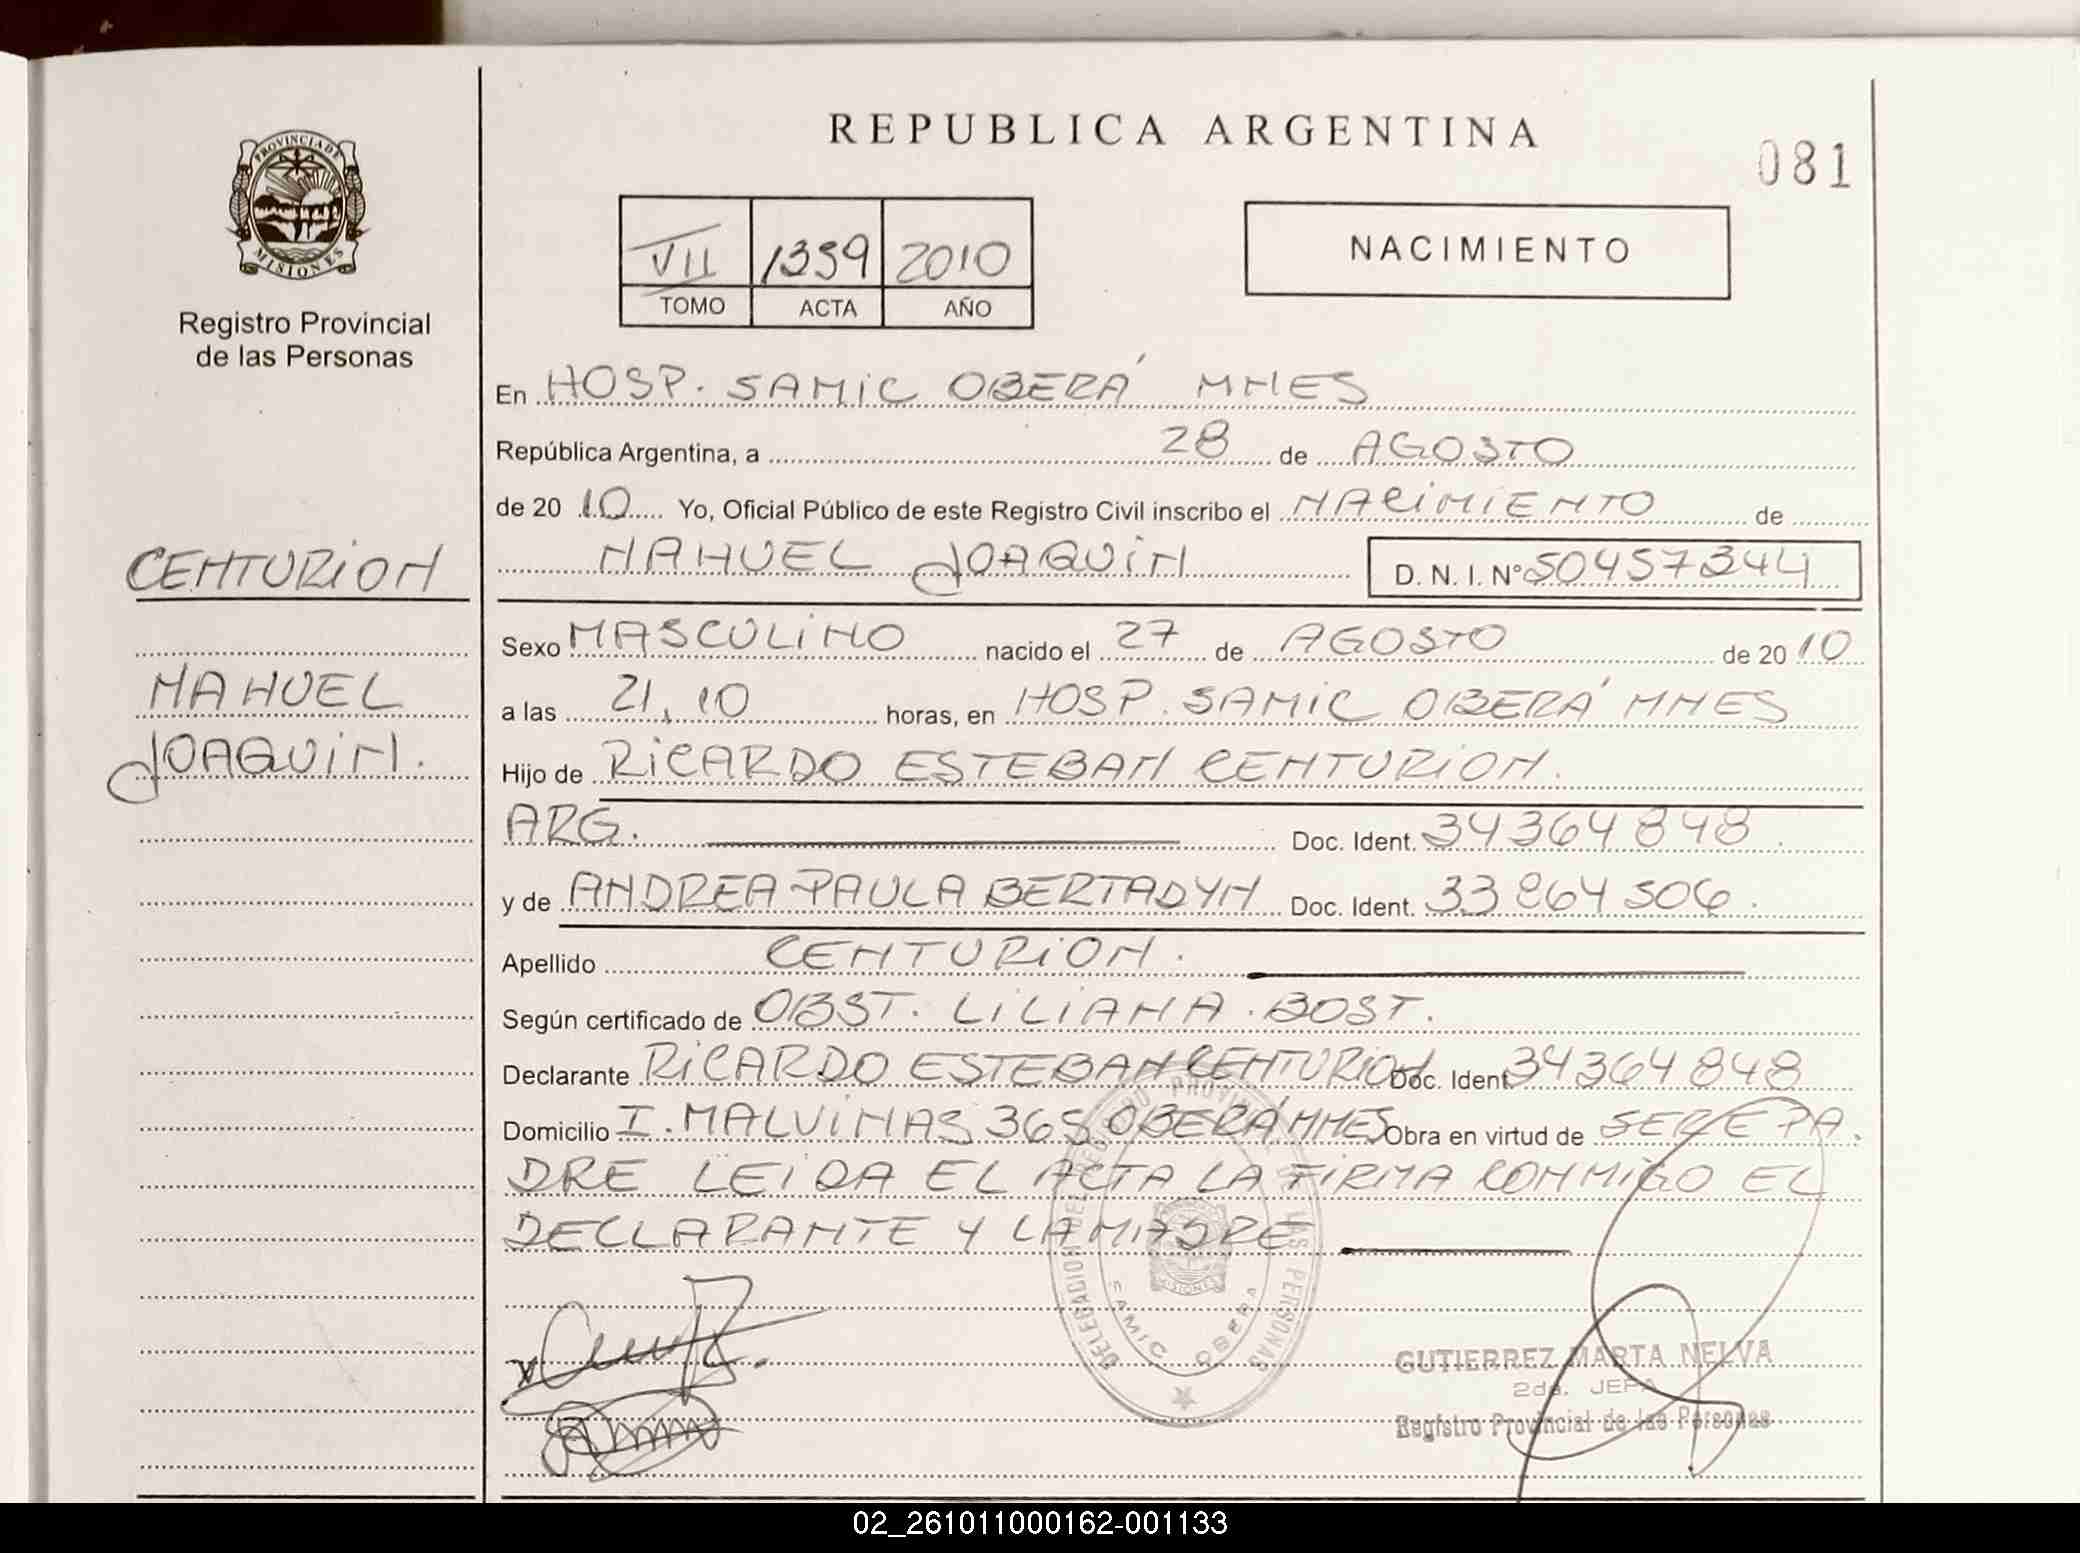 REPUBLICA ARGENTINA
081
PROVINCIA DE
MISIONES
Registro Provincial
de las Personas
VII 1339 2010
TOMO ACTA AÑO
NACIMIENTO
En HOSP. SAMIC OBERÁ MNES
República Argentina, a 28 de AGOSTO
de 20 10 Yo, Oficial Público de este Registro Civil inscribo el NACIMIENTO de
NAHUEL JOAQUIN D. N. I. N° 50457344
CENTURION
NAHUEL
JOAQUIN.
Sexo MASCULINO nacido el 27 de AGOSTO de 20 10
a las 21,10 horas, en HOSP. SAMIC OBERÁ MNES
Hijo de RICARDO ESTEBAN CENTURION.
ARG. Doc. Ident. 34364848.
y de ANDREA PAULA BERTADYN Doc. Ident. 33864506.
Apellido CENTURION.
Según certificado de OBST. LILIANA. BOST.
Declarante RICARDO ESTEBAN CENTURION Doc. Ident. 34364848
Domicilio I. MALVINAS 365 OBERÁ MNES Obra en virtud de SER E PA.
DRE LEIDA EL ACTA LA FIRMA CONMIGO EL
DECLARANTE Y LA MADRE
DELEGACION DEL REGISTRO PROVINCIAL DE LAS PERSONAS
SAMIC OBERA
MISIONES
GUTIERREZ MARTA NELVA
2da. JEFA
Registro Provincial de las Personas
02_261011000162-001133